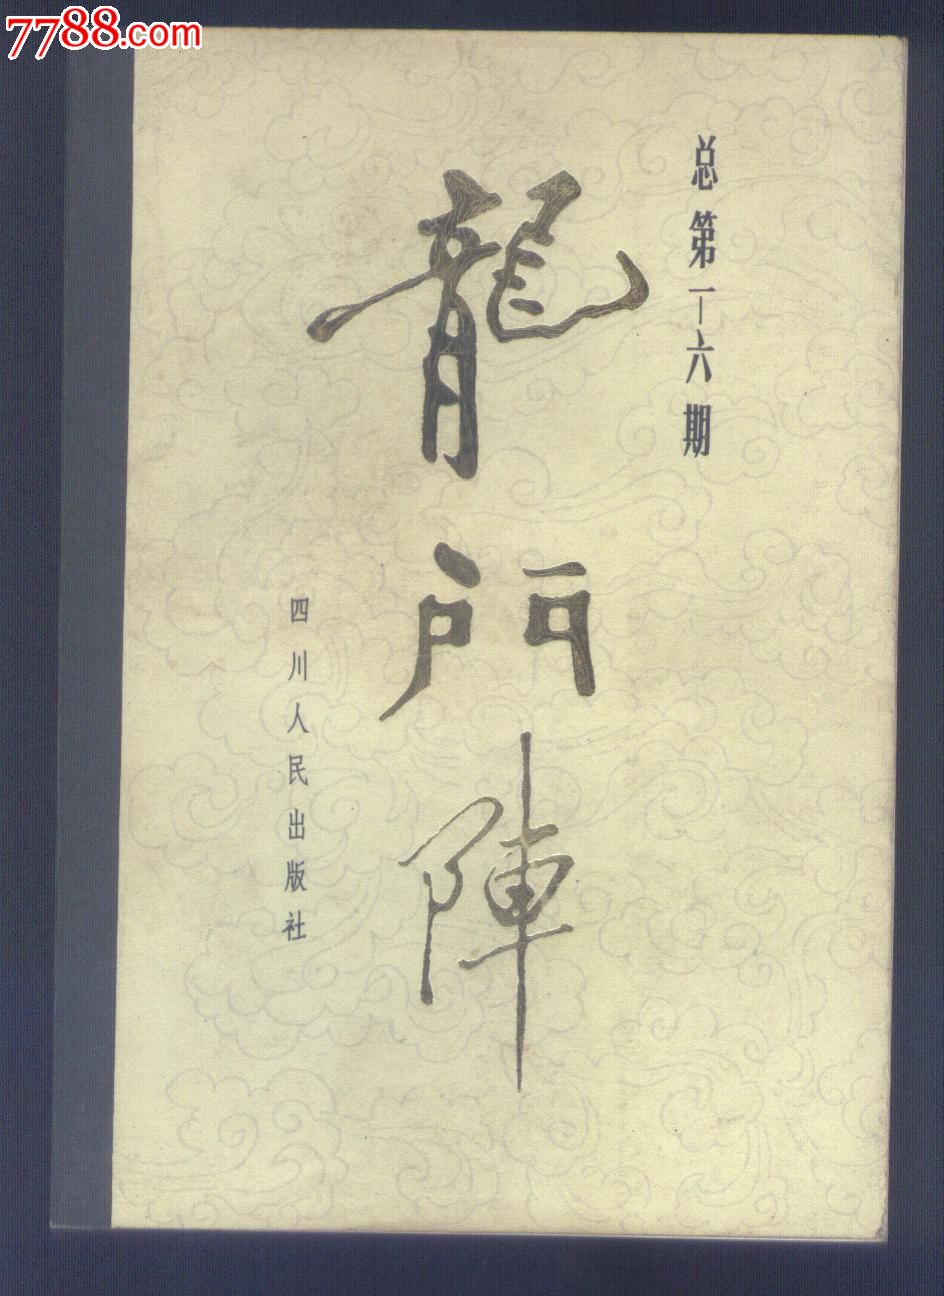 7788.com
总第十六期
龍門陣
四川人民出版社